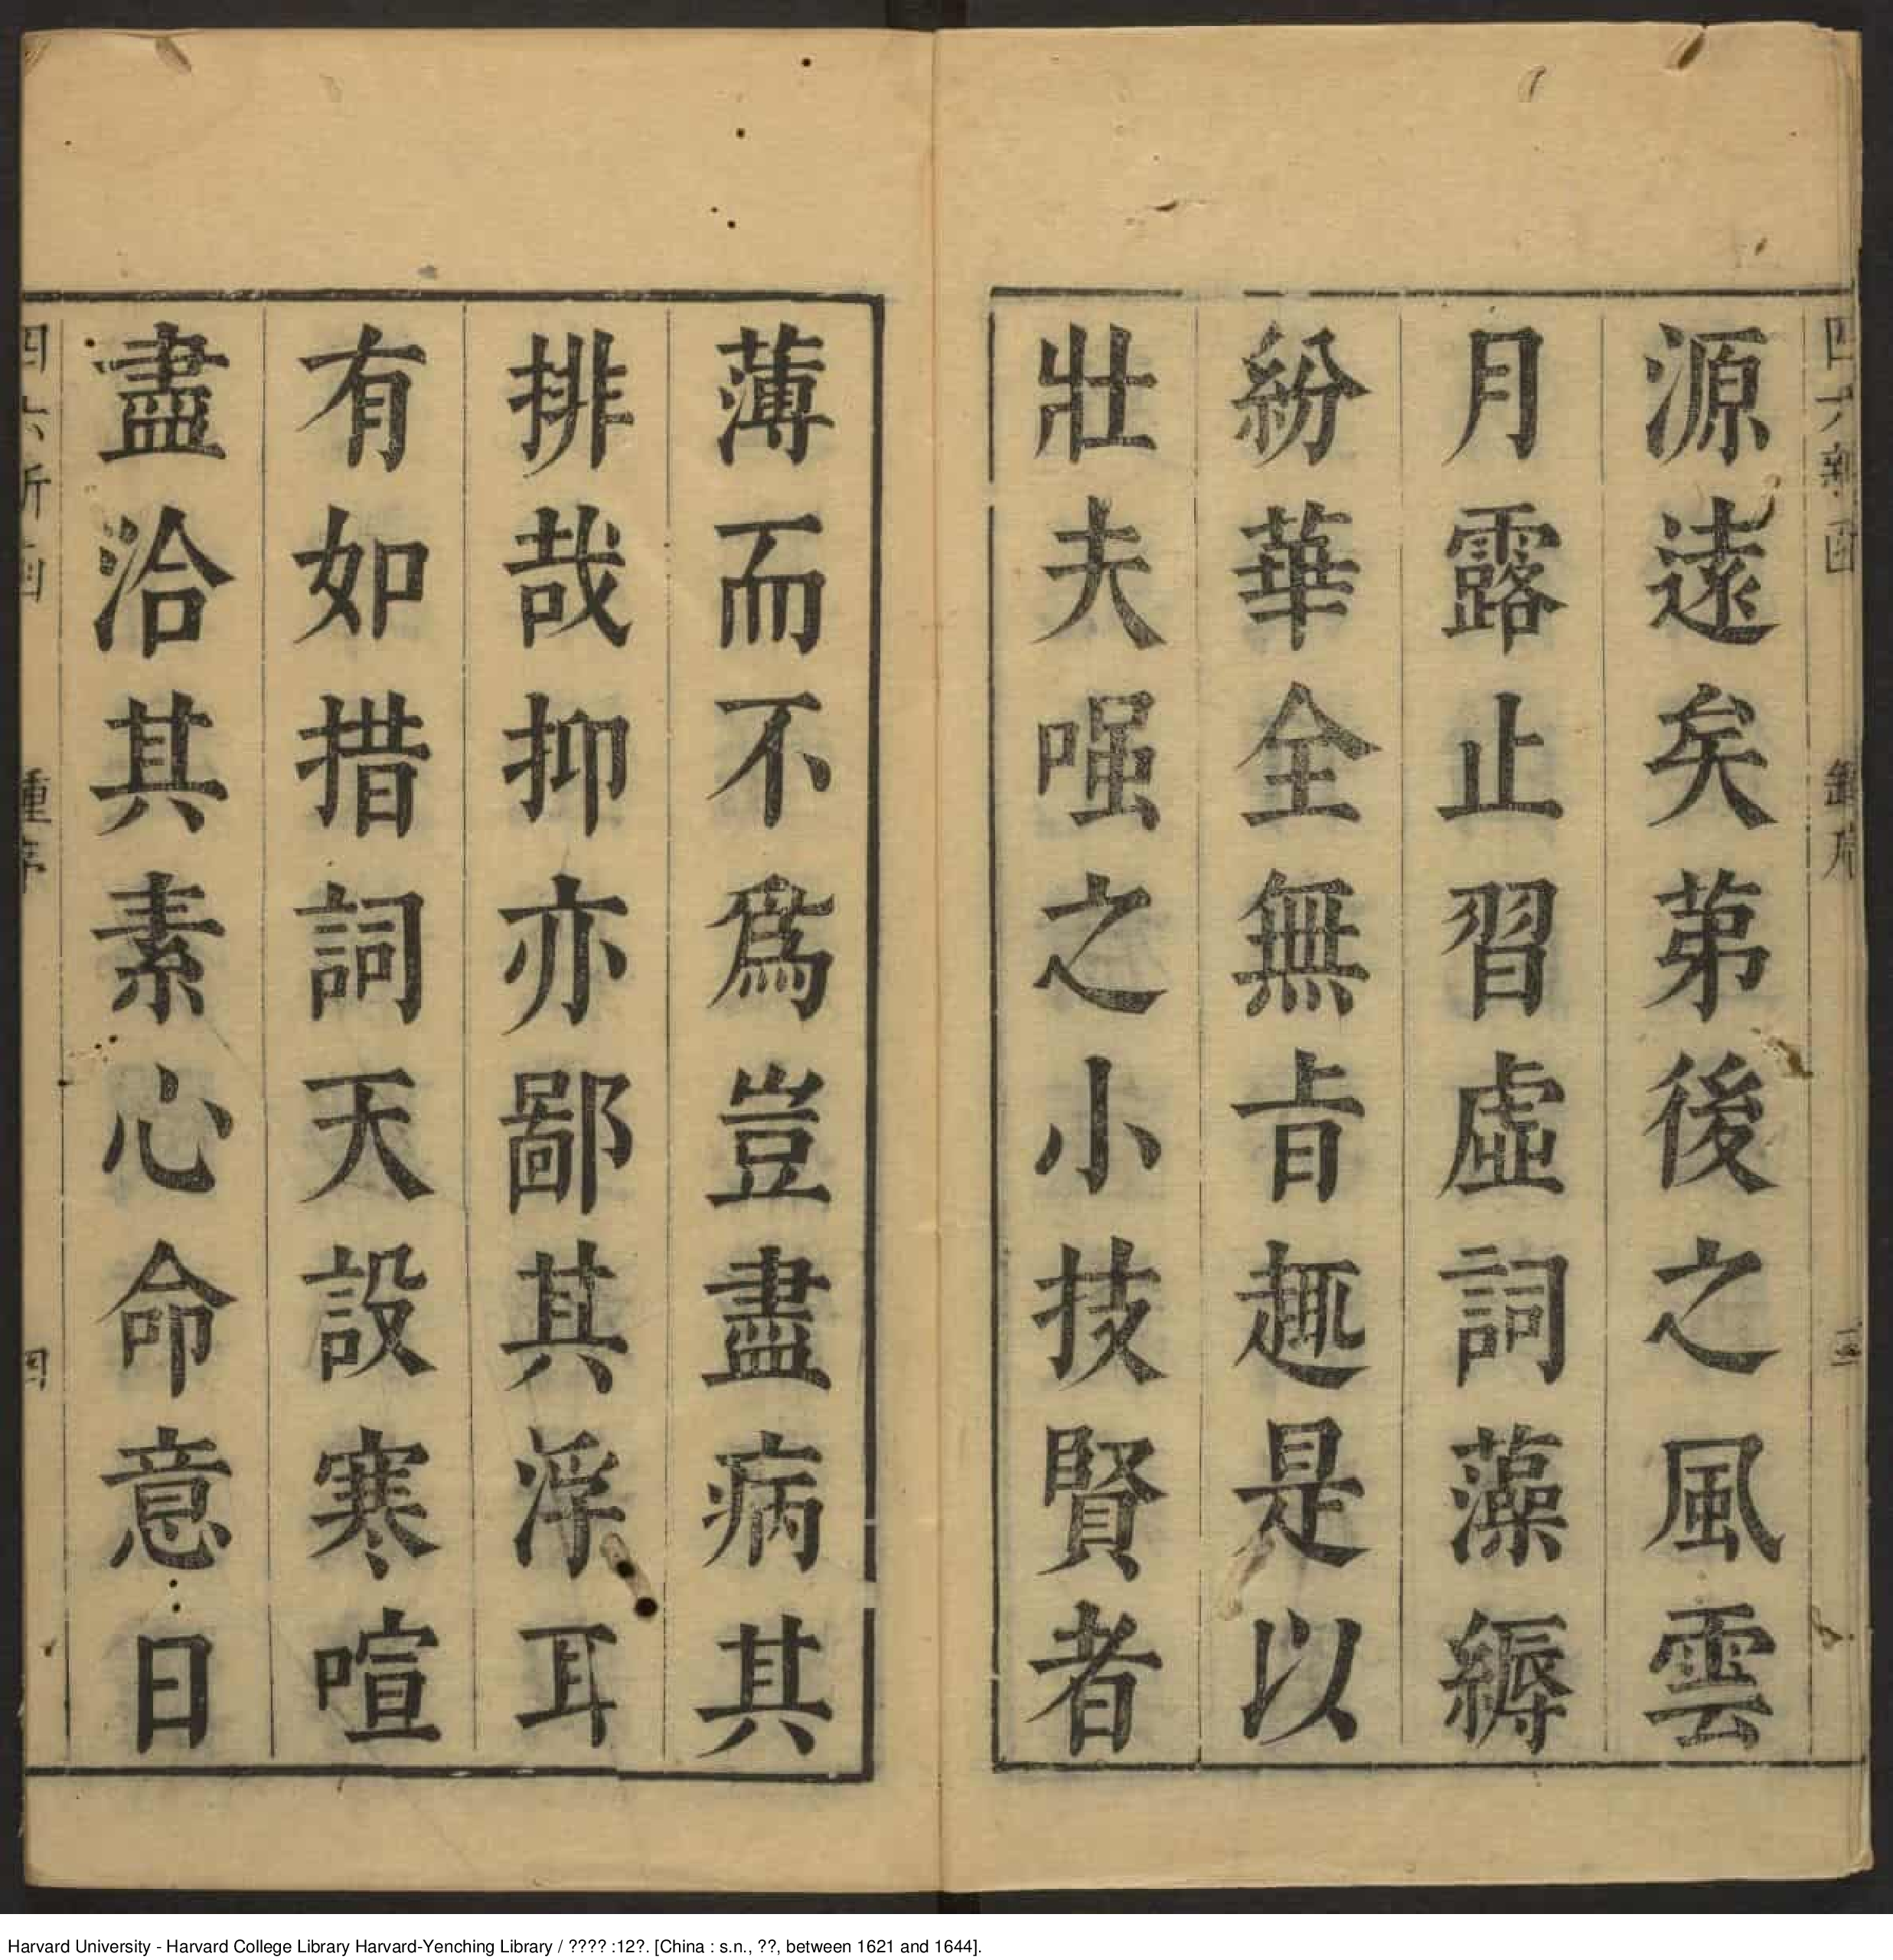 源遠矣苐後之風雲
月露止習虛詞藻縟
紛華全無㫖趣是以
壯夫嗤之小技賢者
薄而不爲豈盡病其
排哉抑亦鄙其浮耳
有如措詞天設寒暄
盡洽其素心命意日
Harvard University - Harvard College Library Harvard-Yenching Library / ???? :12?. [China : s.n., ??, between 1621 and 1644].